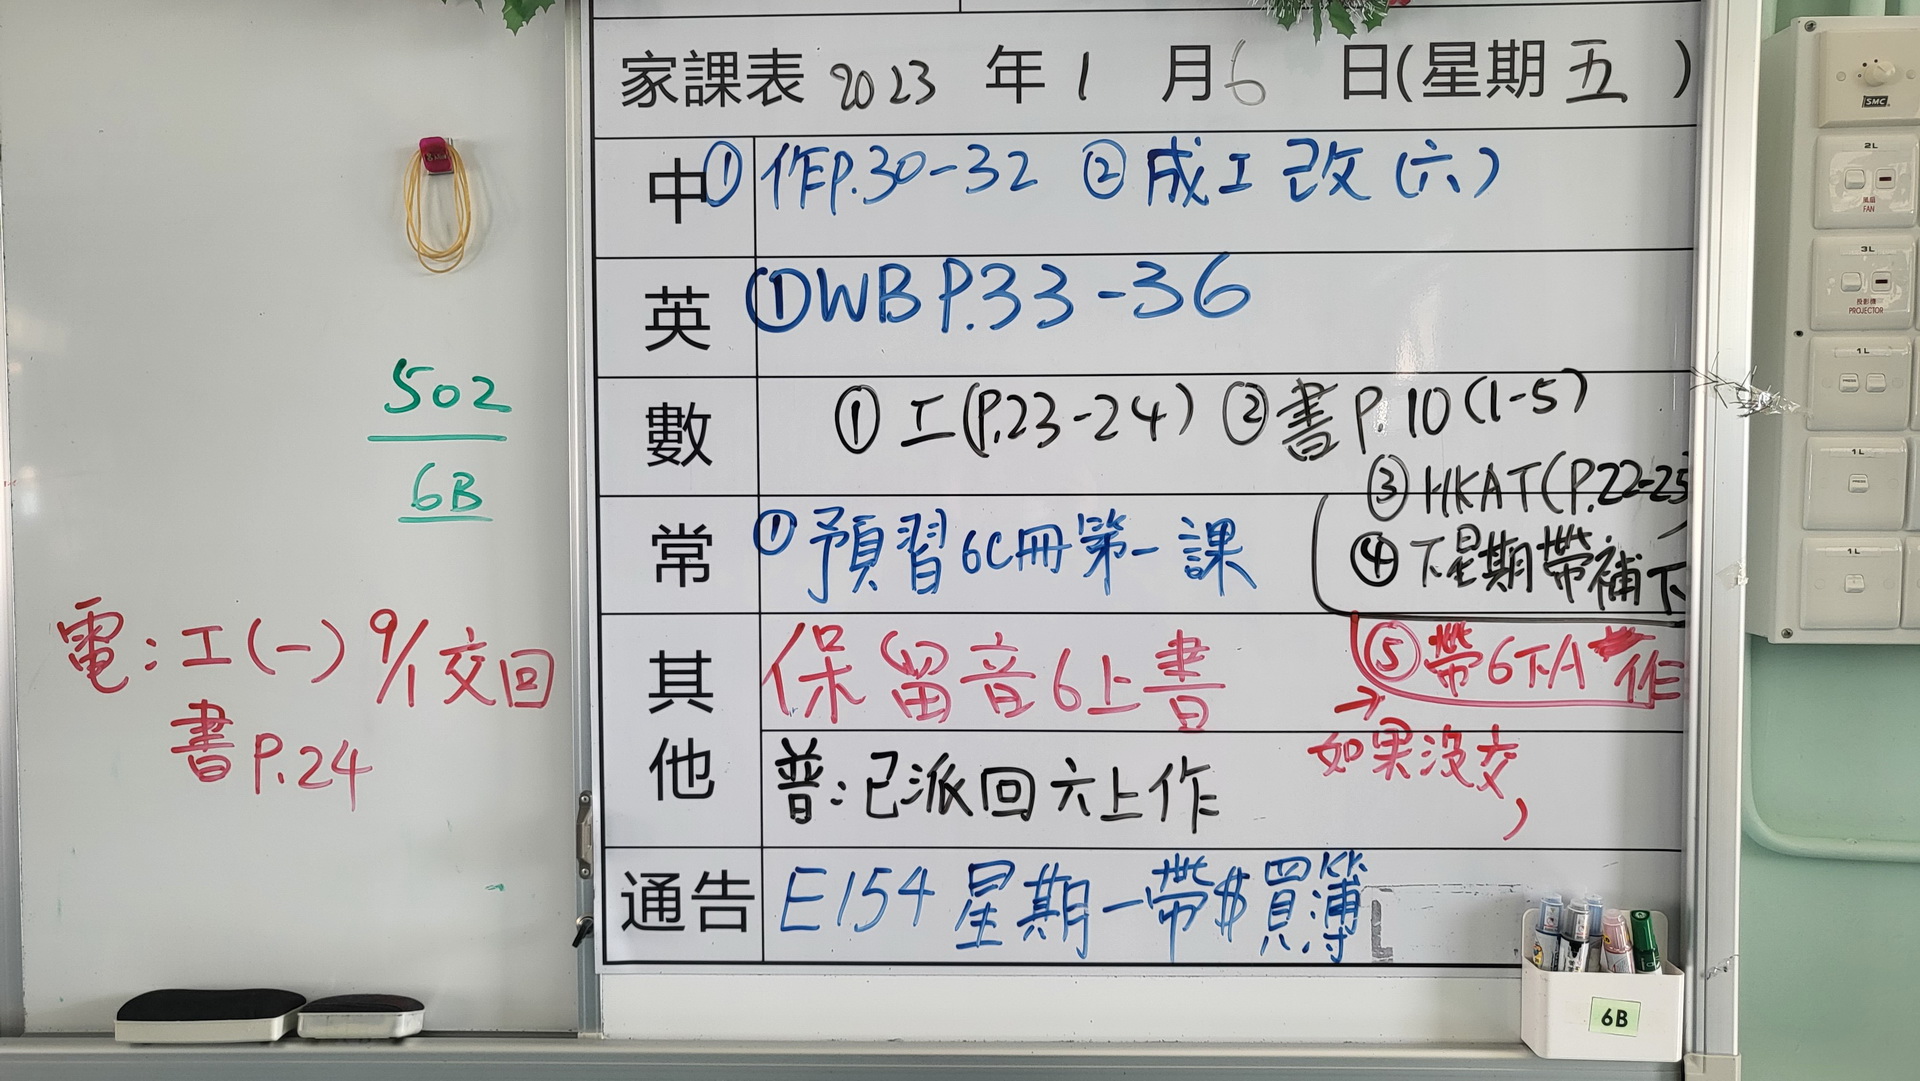 家課表 2023 年 1 月 6 日(星期五)
中 ① 作P.30-32 ② 成工改(六)
英 ① WB P.33-36
數 ① 工(P.23-24) ② 書P.10(1-5)
③ HKAT(P.22-25
④ 下星期帶補下
常 ① 預習6C冊第一課
其他 保留音6上書
⑤ 帶6下A 作
→ 如果沒交,
普:已派回六上作
通告 E154 星期一帶$買簿
502
6B
電:工(一) 9/1交回
書P.24
6B
SMC
2L
風扇
FAN
3L
投影機
PROJECTOR
1L
1L
1L